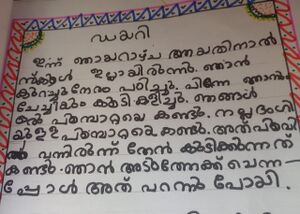 ഡയറി
ഇന്ന് ഞായറാഴ്ച ആയതിനാൽ
സ്കൂൾ ഇല്ലായിരുന്നു. ഞാൻ
കുറച്ചുനേരം പഠിച്ചു. പിന്നേ ഞാനും
ചേച്ചിയും കൂടി കളിച്ചു. ഞങ്ങൾ
ഒരു പൂമ്പാറ്റയെ കണ്ടു. നല്ല ഭംഗി
യുള്ള പൂമ്പാറ്റയെ കണ്ടു. അത് പൂവി
ൽ വന്നിരുന്ന് തേൻ കുടിക്കുന്നത്
കണ്ടു. ഞാൻ അടുത്തേക്ക് ചെന്ന-
പ്പോൾ അത് പറന്നു പോയി.